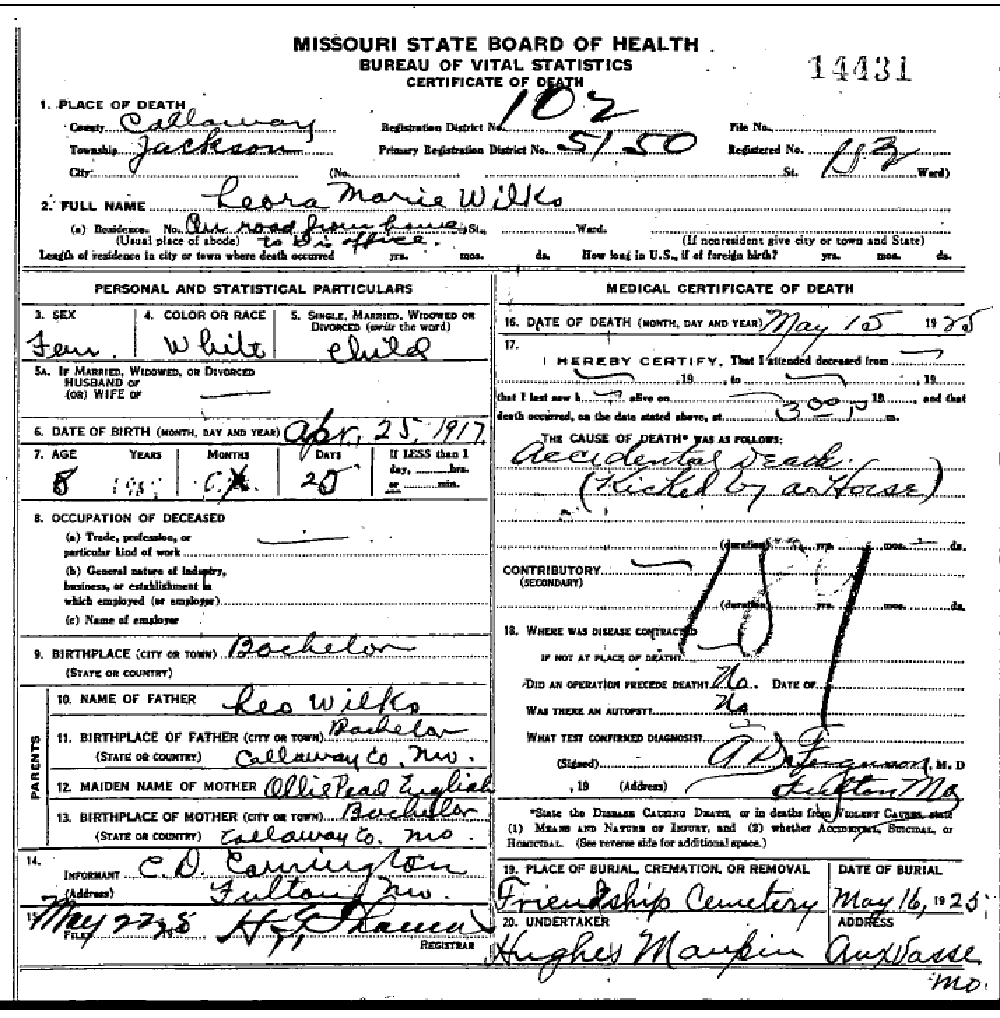 MISSOURI STATE BOARD OF HEALTH
BUREAU OF VITAL STATISTICS
CERTIFICATE OF DEATH
14431
1. PLACE OF DEATH
County Callaway Registration District No. 102 File No.
Township Jackson Primary Registration District No. 5150 Registered No.
City (No. St. Ward)
2. FULL NAME Leora Marie Wilks
(a) Residence. No. On road from home St. Ward.
(Usual place of abode) to Drs office. (If nonresident give city or town and State)
Length of residence in city or town where death occurred yrs. mos. ds. How long in U.S., if of foreign birth? yrs. mos. ds.
PERSONAL AND STATISTICAL PARTICULARS
3. SEX 4. COLOR OR RACE 5. SINGLE, MARRIED, WIDOWED OR
DIVORCED (write the word)
Fem. White Child
5A. IF MARRIED, WIDOWED, OR DIVORCED
HUSBAND OF
(OR) WIFE OF
6. DATE OF BIRTH (MONTH, DAY AND YEAR) Apr. 25, 1917
7. AGE YEARS MONTHS DAYS If LESS than 1
day, hrs.
8 20 or min.
8. OCCUPATION OF DECEASED
(a) Trade, profession, or
particular kind of work
(b) General nature of industry,
business, or establishment in
which employed (or employer)
(c) Name of employer
9. BIRTHPLACE (CITY OR TOWN) Bachelor
(STATE OR COUNTRY)
PARENTS
10. NAME OF FATHER Leo Wilks
11. BIRTHPLACE OF FATHER (CITY OR TOWN) Bachelor
(STATE OR COUNTRY) Callaway Co, Mo.
12. MAIDEN NAME OF MOTHER Ollie Pearl English
13. BIRTHPLACE OF MOTHER (CITY OR TOWN) Bachelor
(STATE OR COUNTRY) Callaway Co. Mo.
14.
INFORMANT C. D. Carrington
(Address) Fulton Mo.
15.
FILED May 22 25
REGISTRAR
MEDICAL CERTIFICATE OF DEATH
16. DATE OF DEATH (MONTH, DAY AND YEAR) May 15 1925
17.
I HEREBY CERTIFY, That I attended deceased from
, 19 , to , 19
that I last saw h alive on 19 , and that
death occurred, on the date stated above, at 3 00 P m.
THE CAUSE OF DEATH* WAS AS FOLLOWS:
Accidental Death.
(Kicked by a Horse)
(duration) yrs. mos. ds.
CONTRIBUTORY
(SECONDARY)
(duration) yrs. mos. ds.
18. WHERE WAS DISEASE CONTRACTED
IF NOT AT PLACE OF DEATH?
DID AN OPERATION PRECEDE DEATH? No. DATE OF
WAS THERE AN AUTOPSY? No
WHAT TEST CONFIRMED DIAGNOSIS?
(Signed) A D Ferguson, M. D
, 19 (Address) Fulton Mo
*State the DISEASE CAUSING DEATH, or in deaths from VIOLENT CAUSES, state
(1) MEANS AND NATURE OF INJURY, and (2) whether ACCIDENTAL, SUICIDAL, or
HOMICIDAL. (See reverse side for additional space.)
19. PLACE OF BURIAL, CREMATION, OR REMOVAL DATE OF BURIAL
Friendship Cemetery May 16, 1925
20. UNDERTAKER ADDRESS
Hughes Maupin Auxvasse
Mo.